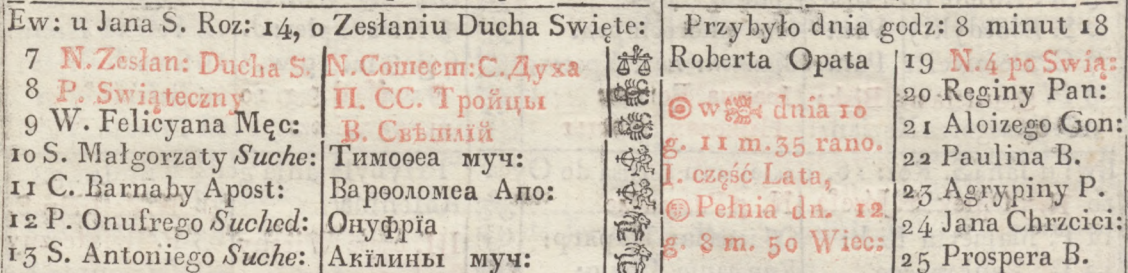 Ew: u Jana S. Roz: 14, o Zesłaniu Ducha Swięte: Przybyło dnia godz: 8 minut 18
7 N. Zesłan: Ducha S. N. Сошест: С. Духа Roberta Opata 19 N. 4 po Swią:
8 P. Swiąteczny П. СС. Тройцы w dnia 10 20 Reginy Pan:
9 W. Felicyana Męc: В. Свѣтлїй g. 11 m. 35 rano. 21 Aloizego Gon:
10 S. Małgorzaty Suche: Тимоѳеа муч: I. część Lata, 22 Paulina B.
11 C. Barnaby Apost: Варѳоломеа Апо: 23 Agrypiny P.
12 P. Onufrego Suched: Онуфрїа Pełnia dn. 12 24 Jana Chrzcici:
13 S. Antoniego Suche: Акїлины муч: g. 8 m. 50 Wiec: 25 Prospera B.